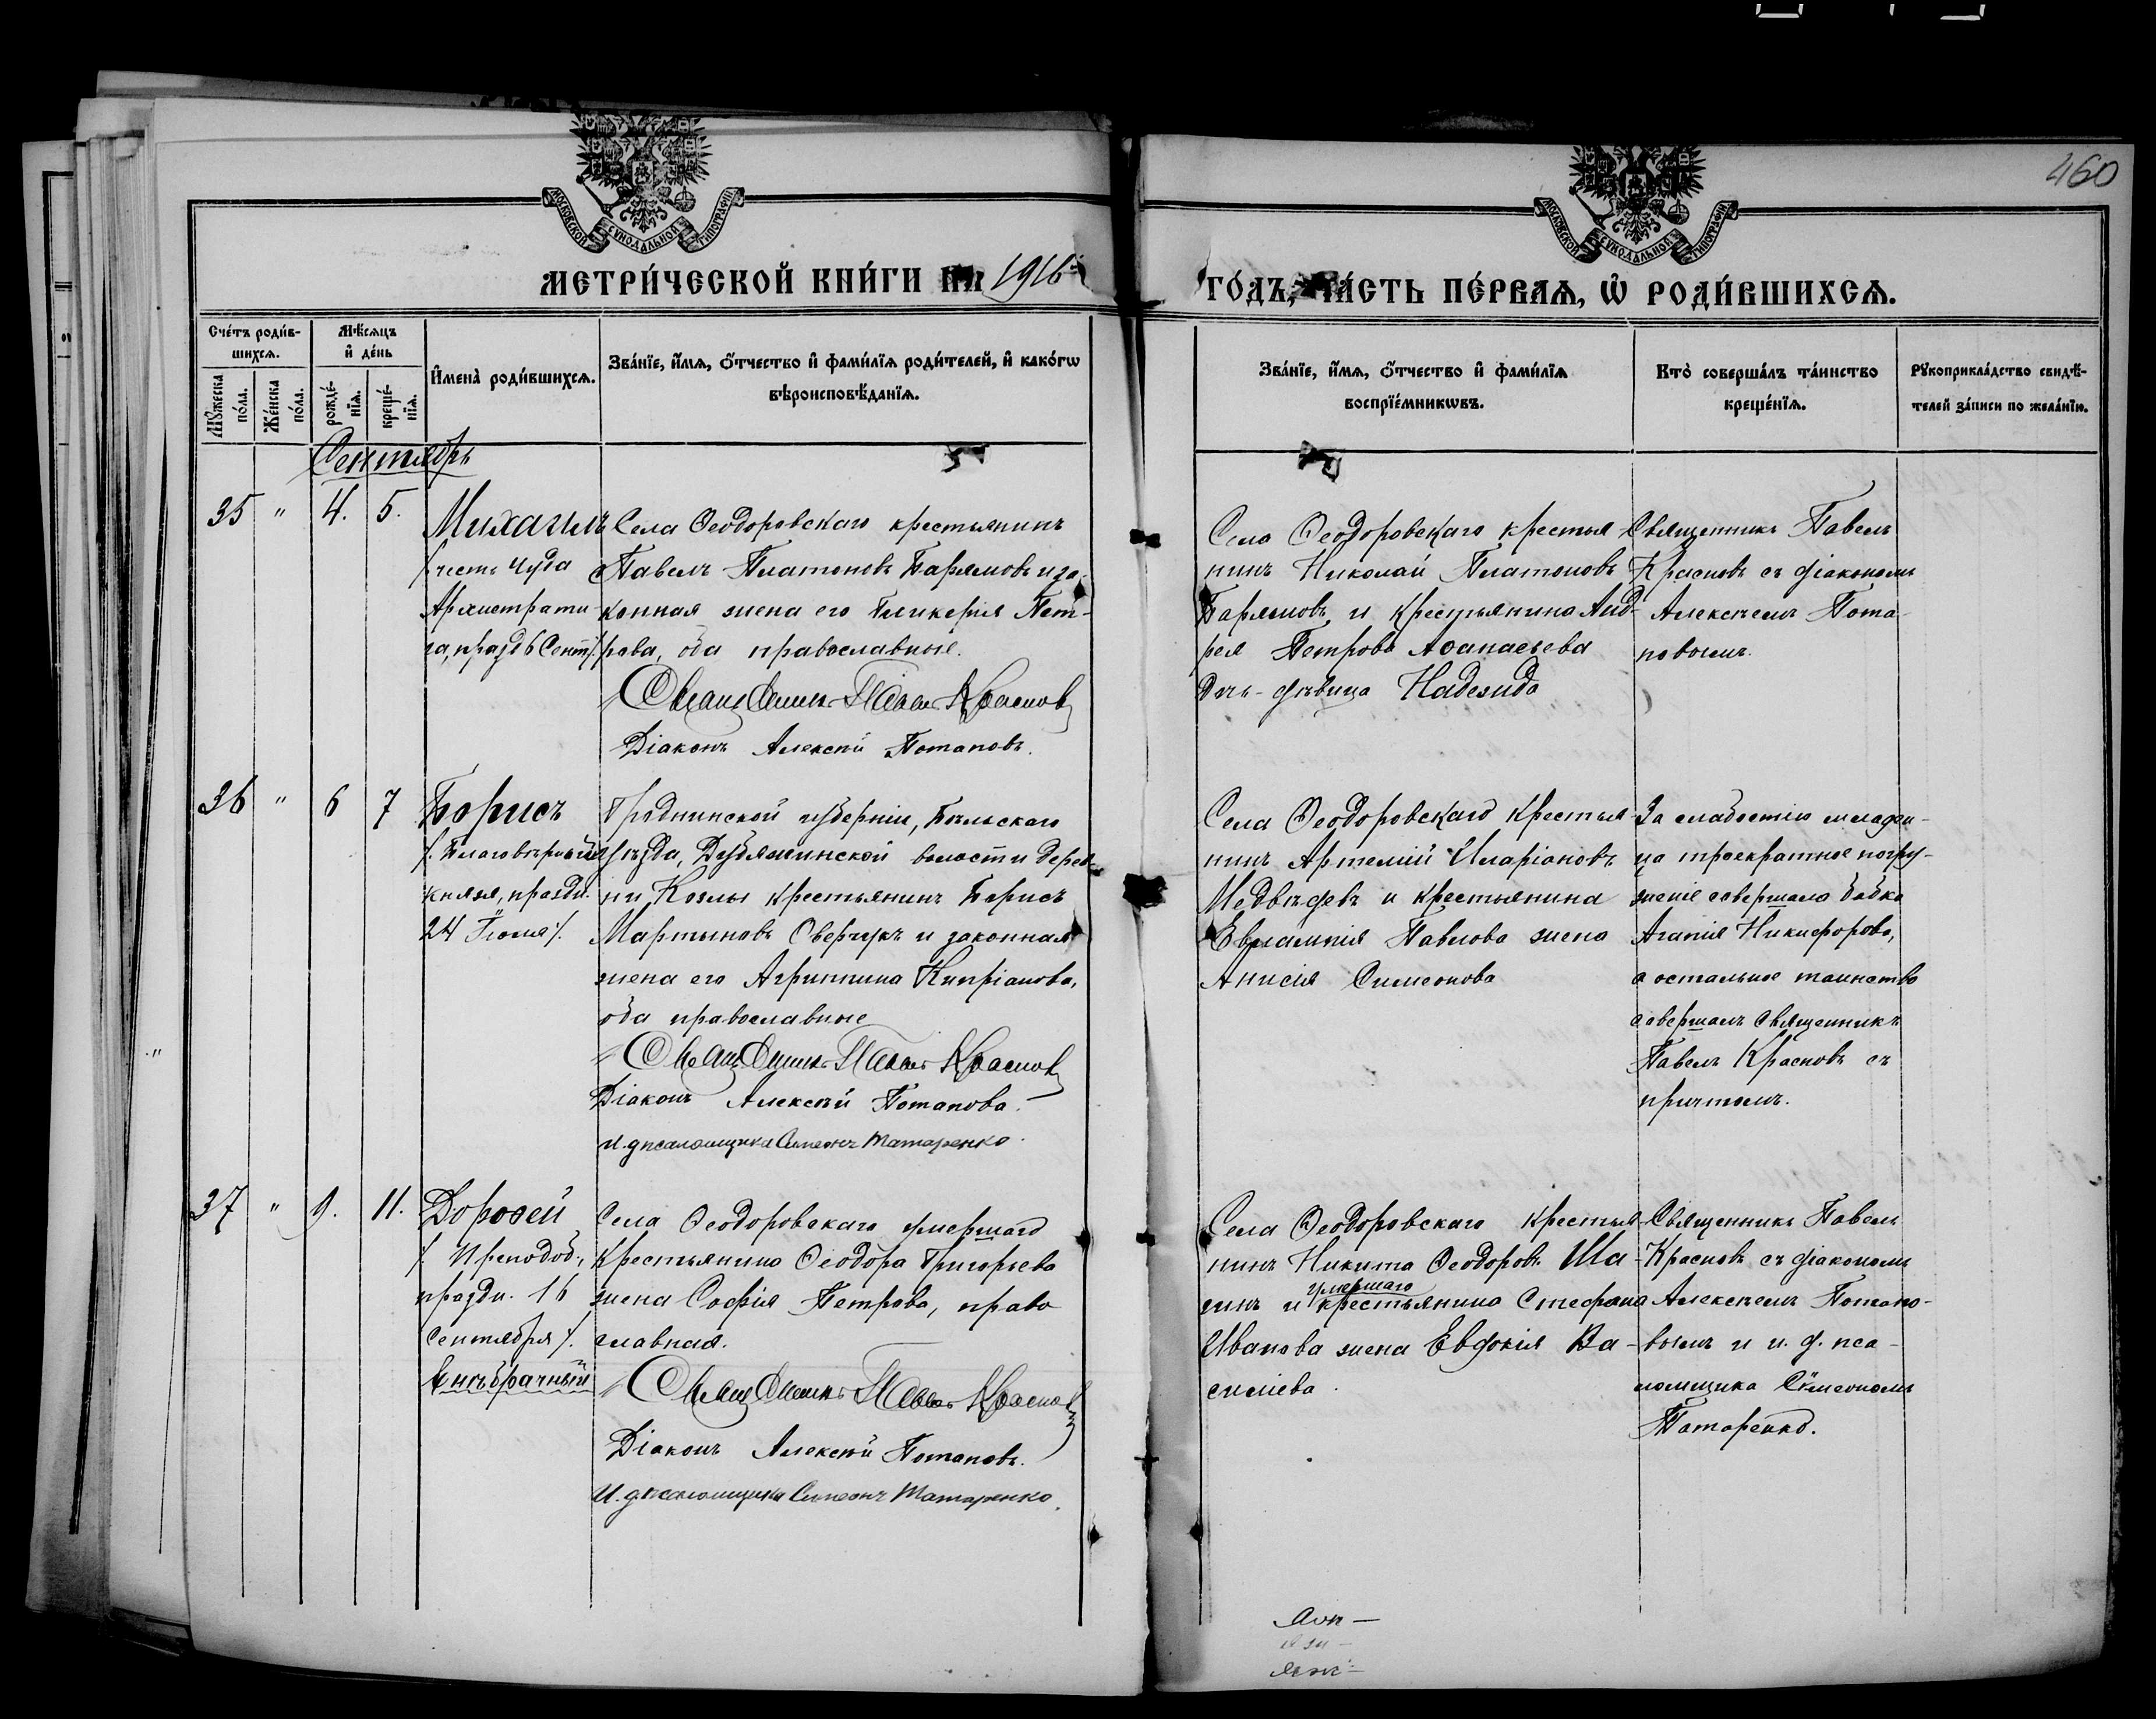 460
МОСКОВСКОЙ СѴНОДАЛЬНОЙ ТИПОГРАФІИ
МОСКОВСКОЙ СѴНОДАЛЬНОЙ ТИПОГРАФІИ
МЕТРИ́ЧЕСКОЙ КНИ́ГИ НА 1916
ГО́ДЪ, ЧА́СТЬ ПЕ́РВАѦ, Ѡ҆ РОДИ́ВШИХСѦ.
Счéтъ роди́в-
шихсѧ.
Мꙋ́жеска
по́ла.
Же́нска
по́ла.
Мѣ́сѧцъ
и҆ де́нь
рожде́-
нїѧ.
креще́-
нїѧ.
И҆мена̀ роди́вшихсѧ.
Зва́нїе, и҆́мѧ, ѻ҆́тчество и҆ фами́лїѧ роди́телей, и҆ како́гѡ
вѣроисповѣ́данїѧ.
Зва́нїе, и҆́мѧ, ѻ҆́тчество и҆ фами́лїѧ
воспрїе́мникѡвъ.
Кто̀ соверша́лъ та́инство
креще́нїѧ.
Рꙋкоприкла́дство свидѣ́-
телей за́писи по жела́нїю.
Сентябрь
35 " 4. 5.
Михаилъ
/честь Чуда
Архистрати-
га, празд 6 Сент/.
Села Ѳеодоровскаго крестьянинъ
Павелъ Платоновъ Барямовъ и за-
конная жена его Гликерія Пет-
рова, оба православные.
Священникъ Павелъ Красновъ
Діаконъ Алексій Потаповъ.
Села Ѳеодоровскаго крестья-
нинъ Николай Платоновъ
Барямовъ и крестьянина Анд-
рея Петрова Аѳанасьева
дочь-дѣвица Надежда
Священникъ Павелъ
Красновъ съ діакономъ
Алексѣемъ Пота-
повымъ.
36 " 6 7
Борисъ
/. Благовѣрный
князя, праздн.
24 Іюля/.
Гродненской губерніи, Бѣльскаго
уѣзда, волости дерев-
ни Козлы крестьянинъ Борисъ
Мартыновъ Сверчукъ и законная
жена его Агриппина Кипріанова,
оба православные
Священникъ Павелъ Красновъ
Діаконъ Алексѣй Потапова.
и. д псаломщика Симеонъ Татаренко.
Села Ѳеодоровскаго крестья-
нинъ Артемій Иларіоновъ
Медвѣдевъ и крестьянина
Евлампія Павлова жена
Анисія Симеонова
За слабостію младен-
ца троекратное погру-
женіе совершала бабка
Агапія Никифорова,
а остальное таинство
совершалъ Священникъ
Павелъ Красновъ съ
причтомъ.
37 " 9. 11.
Дороѳей
/. Преподоб.,
праздн. 16
Сентября/.
Внѣбрачный
Села Ѳеодоровскаго умершаго
крестьянина Ѳеодора Григорьева
жена Софія Петрова, право
славная.
Священникъ Павелъ Красновъ
Діаконъ Алексѣй Потаповъ.
И. д псаломщика Симеонъ Татаренко.
Села Ѳеодоровскаго крестья-
нинъ Никита Ѳеодоровъ Ша-
умершаго
гинъ и крестьянина Стефана
Иванова жена Евдокія Ва-
силіева.
Священникъ Павелъ
Красновъ съ діакономъ
Алексѣемъ Потапо-
вымъ и и. д. пса-
ломщика Сѵмеономъ
Татаренко.